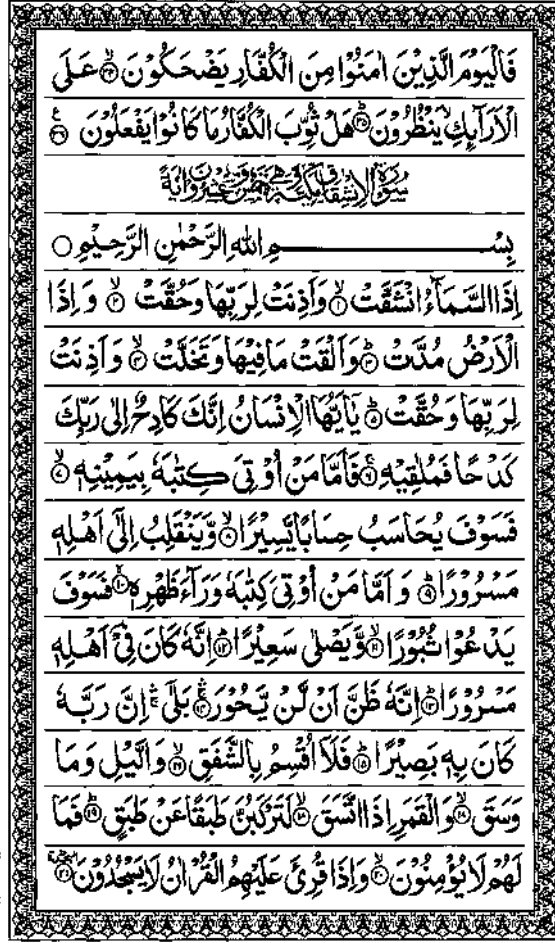 فَالۡیَوۡمَ الَّذِیۡنَ اٰمَنُوۡا مِنَ الۡکُفَّارِ یَضۡحَکُوۡنَ ﴿۳۴﴾ۙ عَلَی
الۡاَرَآئِکِ ۙ یَنۡظُرُوۡنَ ﴿۳۵﴾ؕ هَلۡ ثُوِّبَ الۡکُفَّارُ مَا کَانُوۡا یَفۡعَلُوۡنَ ﴿۳۶﴾
سورة الانشقاق مكية وهي خمس وعشرون اية
بِسۡمِ اللّٰهِ الرَّحۡمٰنِ الرَّحِیۡمِ
اِذَا السَّمَآءُ انۡشَقَّتۡ ﴿۱﴾ۙ وَاَذِنَتۡ لِرَبِّهَا وَحُقَّتۡ ﴿۲﴾ۙ وَ اِذَا
الۡاَرۡضُ مُدَّتۡ ﴿۳﴾ؕ وَاَلۡقَتۡ مَا فِیۡهَا وَتَخَلَّتۡ ﴿۴﴾ۙ وَاَذِنَتۡ
لِرَبِّهَا وَحُقَّتۡ ﴿۵﴾ؕ یٰۤاَیُّهَا الۡاِنۡسَانُ اِنَّکَ کَادِحٌ اِلٰی رَبِّکَ
کَدۡحًا فَمُلٰقِیۡهِ ﴿۶﴾ۚ فَاَمَّا مَنۡ اُوۡتِیَ کِتٰبَهٗ بِیَمِیۡنِهٖ ﴿۷﴾ۙ
فَسَوۡفَ یُحَاسَبُ حِسَابًا یَّسِیۡرًا ﴿۸﴾ۙ وَّیَنۡقَلِبُ اِلٰۤی اَهۡلِهٖ
مَسۡرُوۡرًا ﴿۹﴾ؕ وَ اَمَّا مَنۡ اُوۡتِیَ کِتٰبَهٗ وَرَآءَ ظَهۡرِهٖ ﴿۱۰﴾ۙ فَسَوۡفَ
یَدۡعُوۡا ثُبُوۡرًا ﴿۱۱﴾ۙ وَّیَصۡلٰی سَعِیۡرًا ﴿۱۲﴾ؕ اِنَّهٗ کَانَ فِیۡۤ اَهۡلِهٖ
مَسۡرُوۡرًا ﴿۱۳﴾ؕ اِنَّهٗ ظَنَّ اَنۡ لَّنۡ یَّحُوۡرَ ﴿۱۴﴾ۚ بَلٰۤی ۚ اِنَّ رَبَّهٗ
کَانَ بِهٖ بَصِیۡرًا ﴿۱۵﴾ؕ فَلَاۤ اُقۡسِمُ بِالشَّفَقِ ﴿۱۶﴾ۙ وَالَّیۡلِ وَمَا
وَسَقَ ﴿۱۷﴾ۙ وَالۡقَمَرِ اِذَا اتَّسَقَ ﴿۱۸﴾ۙ لَتَرۡکَبُنَّ طَبَقًا عَنۡ طَبَقٍ ﴿۱۹﴾ؕ فَمَا
لَهُمۡ لَا یُؤۡمِنُوۡنَ ﴿۲۰﴾ۙ وَاِذَا قُرِئَ عَلَیۡهِمُ الۡقُرۡاٰنُ لَا یَسۡجُدُوۡنَ ﴿۲۱﴾